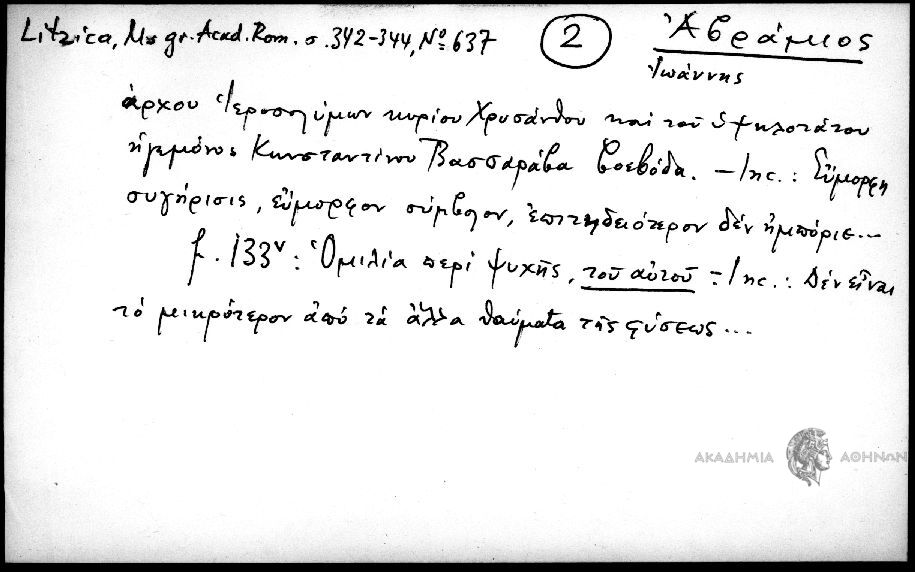 Litzica, Ms gr. Acad. Rom. σ. 342-344, Nº 637 2 Ἀβράμιος
Ἰωάννης
άρχου Ἱεροσολύμων κυρίου Χρυσάνθου καὶ τοῦ ὑψηλοτάτου
ἡγεμόνος Κωνσταντίνου Βασσαράβα βοεβόδα. – Inc.: Εὔμορφη
συγήρισις, εὔμορφον σύμβολον, ἐπιτηδειότερον δὲν ἠμπόριε...
f. 133v: Ὁμιλία περὶ ψυχῆς, τοῦ αὐτοῦ – Inc.: Δὲν εἶναι
τὸ μικρότερον ἀπὸ τὰ ἄλλα θαύματα τῆς φύσεως...
ΑΚΑΔΗΜΙΑ ΑΘΗΝΩΝ